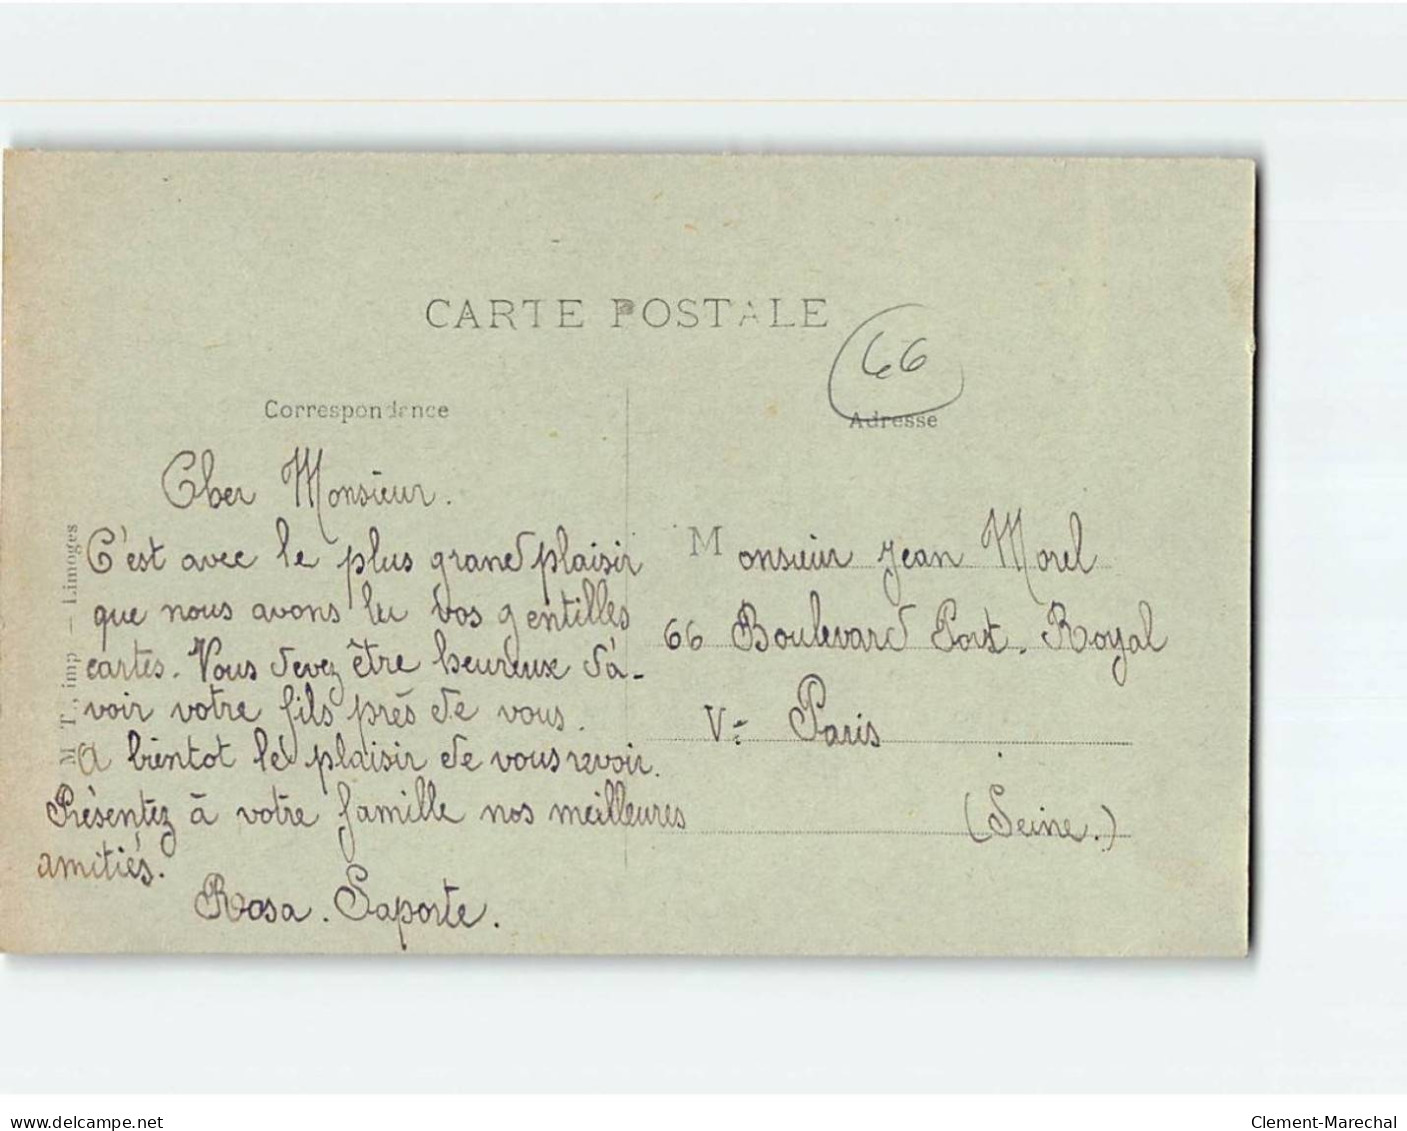 CARTE POSTALE
66
Correspondance
Adresse
Cher Monsieur.
C'est avec le plus grand plaisir
que nous avons lu vos gentilles
cartes. Vous devez être heureux d'a-
voir votre fils près de vous.
A bientot le plaisir de vous revoir.
Présentez à votre famille nos meilleures
amitiés.
Rosa. Laporte.
M T., imp - Limoges
Monsieur Jean Morel
66 Boulevard Port. Royal
Ve Paris
(Seine.)
delcampe.net
Clement-Marechal